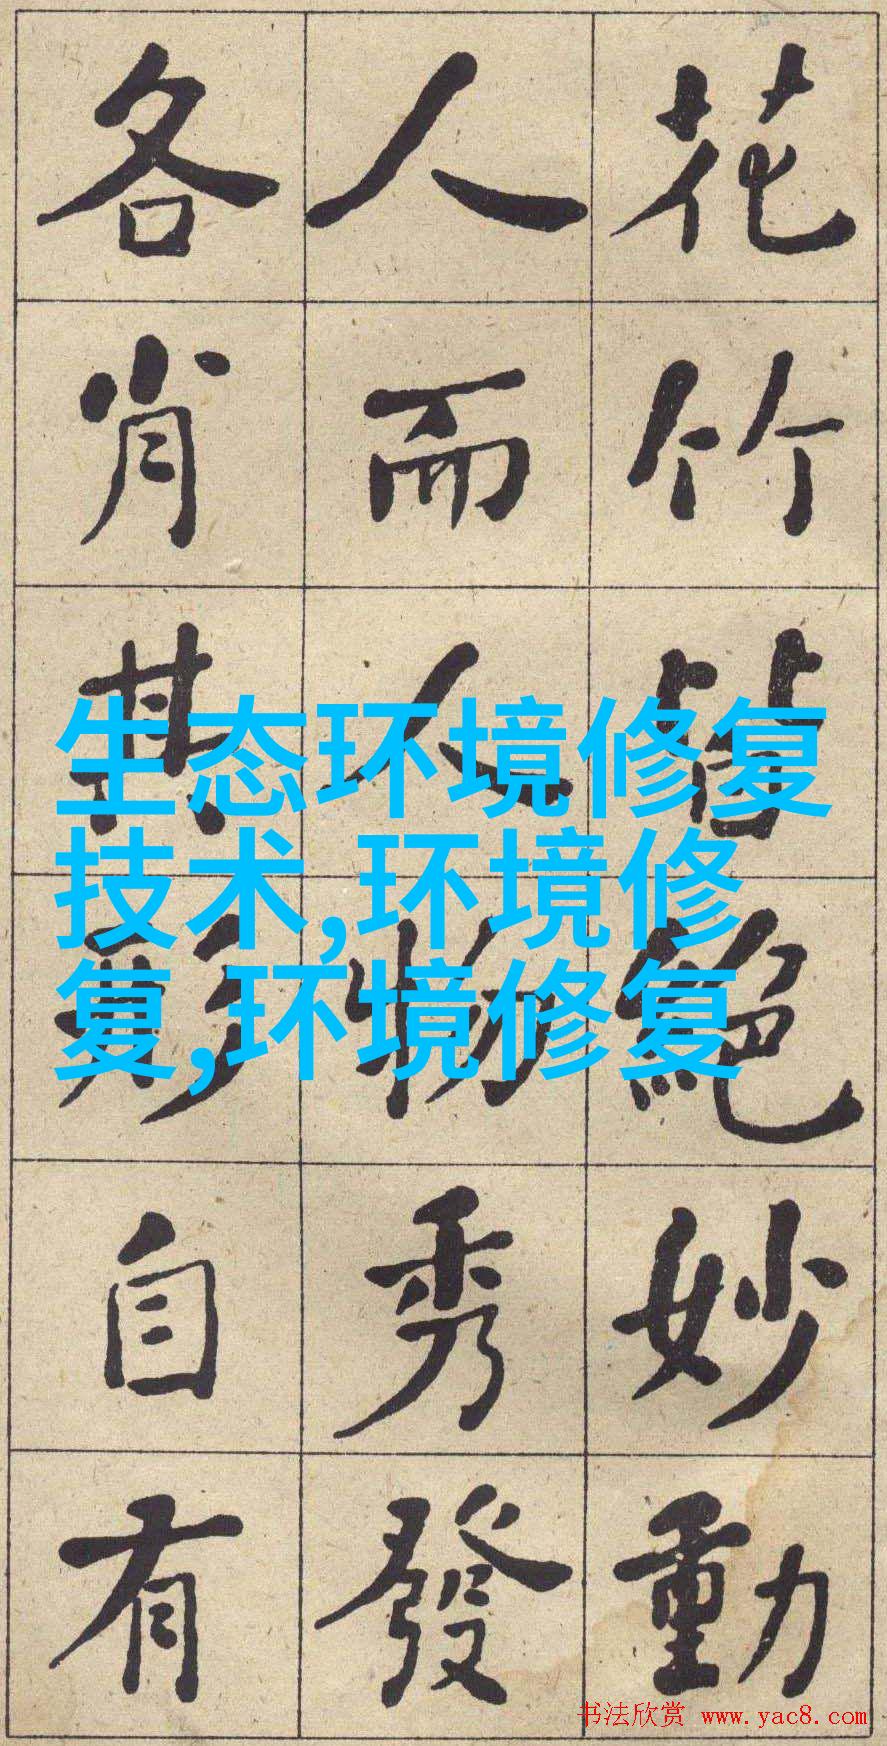 花竹皆絕妙動
人而人物秀發
各肖其形自有
生态环境修复
技术,环境修
复,环境修复
书法欣赏 www.yac8.com